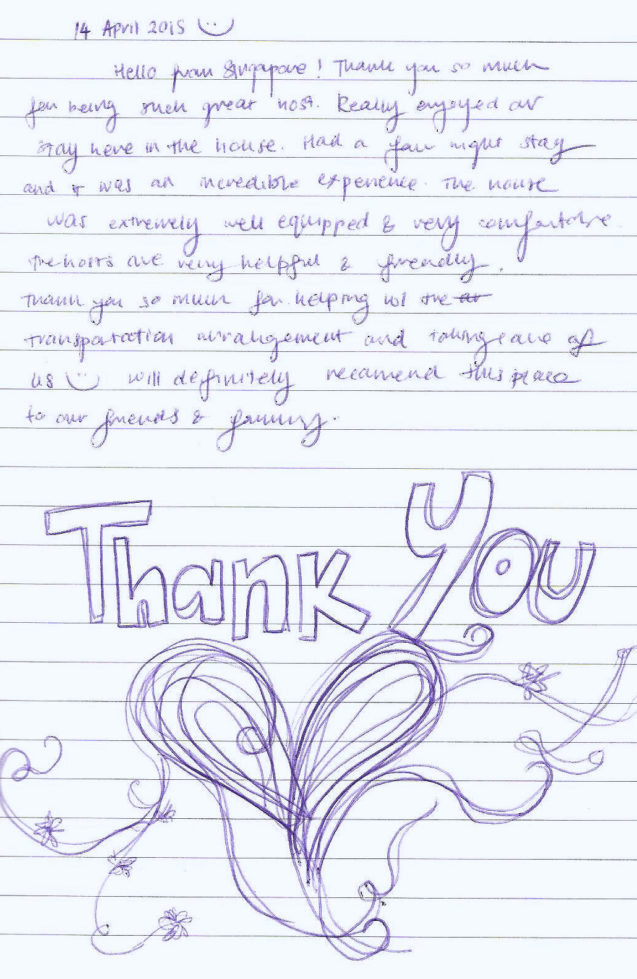 14 April 2015
Hello from Singapore! Thank you so much
for being such great host. Really enjoyed our
stay here in the house. Had a four night stay
and it was an incredible experience. The house
was extremely well equipped & very comfortable.
The hosts are very helpful & friendly.
Thank you so much for helping w/ the
transportation arrangement and taking care of
us will definitely recomend this place
to our friends & family.
Thank You